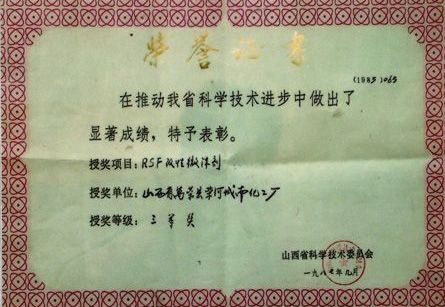 荣誉证书
(1985)065
在推动我省科学技术进步中做出了
显著成绩，特予表彰。
授奖项目：RSF改性微沫剂
授奖单位：山西省万荣县荣河城市化工厂
授奖等级：三等奖
山西省科学技术委员会
一九八七年九月